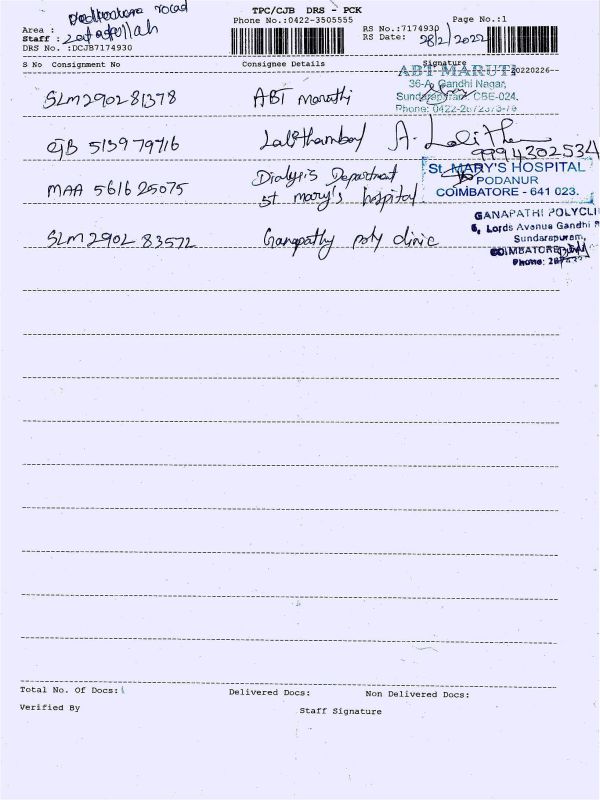 TPC/CJB DRS - PCK
Area : road
Phone No.:0422-3505555
Page No.:1
Staff :
RS No.:7174930
DRS No. :DCJB7174930
RS Date: 28/2/2022
S No Consignment No Consignee Details Signature
20220226
ABT MARUTI
36-A, Gandhi Nagar,
CBE-024.
SLM290281378 ABT maruthi
Phone: 0422-
513979716 A. Lalitha
9994302534
MAA 561625075 Dialysis Department
st mary's hospital
St. MARY'S HOSPITAL
PODANUR
COIMBATORE - 641 023.
SLM2902 83572 Ganapathy poly clinic
GANAPATHI POLYCLI
6, Lords Avenue Gandhi
Sundarapuram,
COIMBATORE
Phone:
Total No. Of Docs: Delivered Docs: Non Delivered Docs:
Verified By Staff Signature